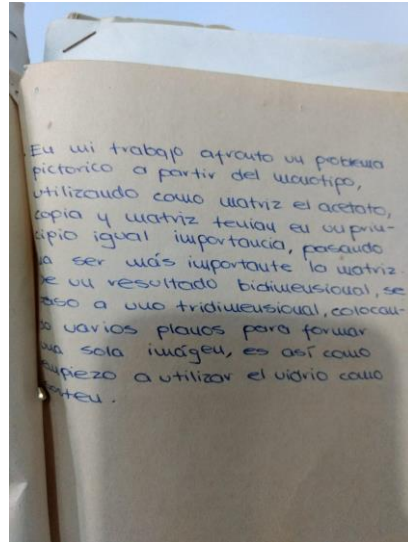 En mi trabajo afronto un problema
pictorico a partir del monotipo,
utilizando como matriz el acetato,
copia y matriz tenian en un prin-
cipio igual importancia, pasando
a ser más importante la matriz.
De un resultado bidimensional, se
paso a uno tridimensional, colocan-
do varios planos para formar
una sola imágen, es así como
empiezo a utilizar el vidrio como